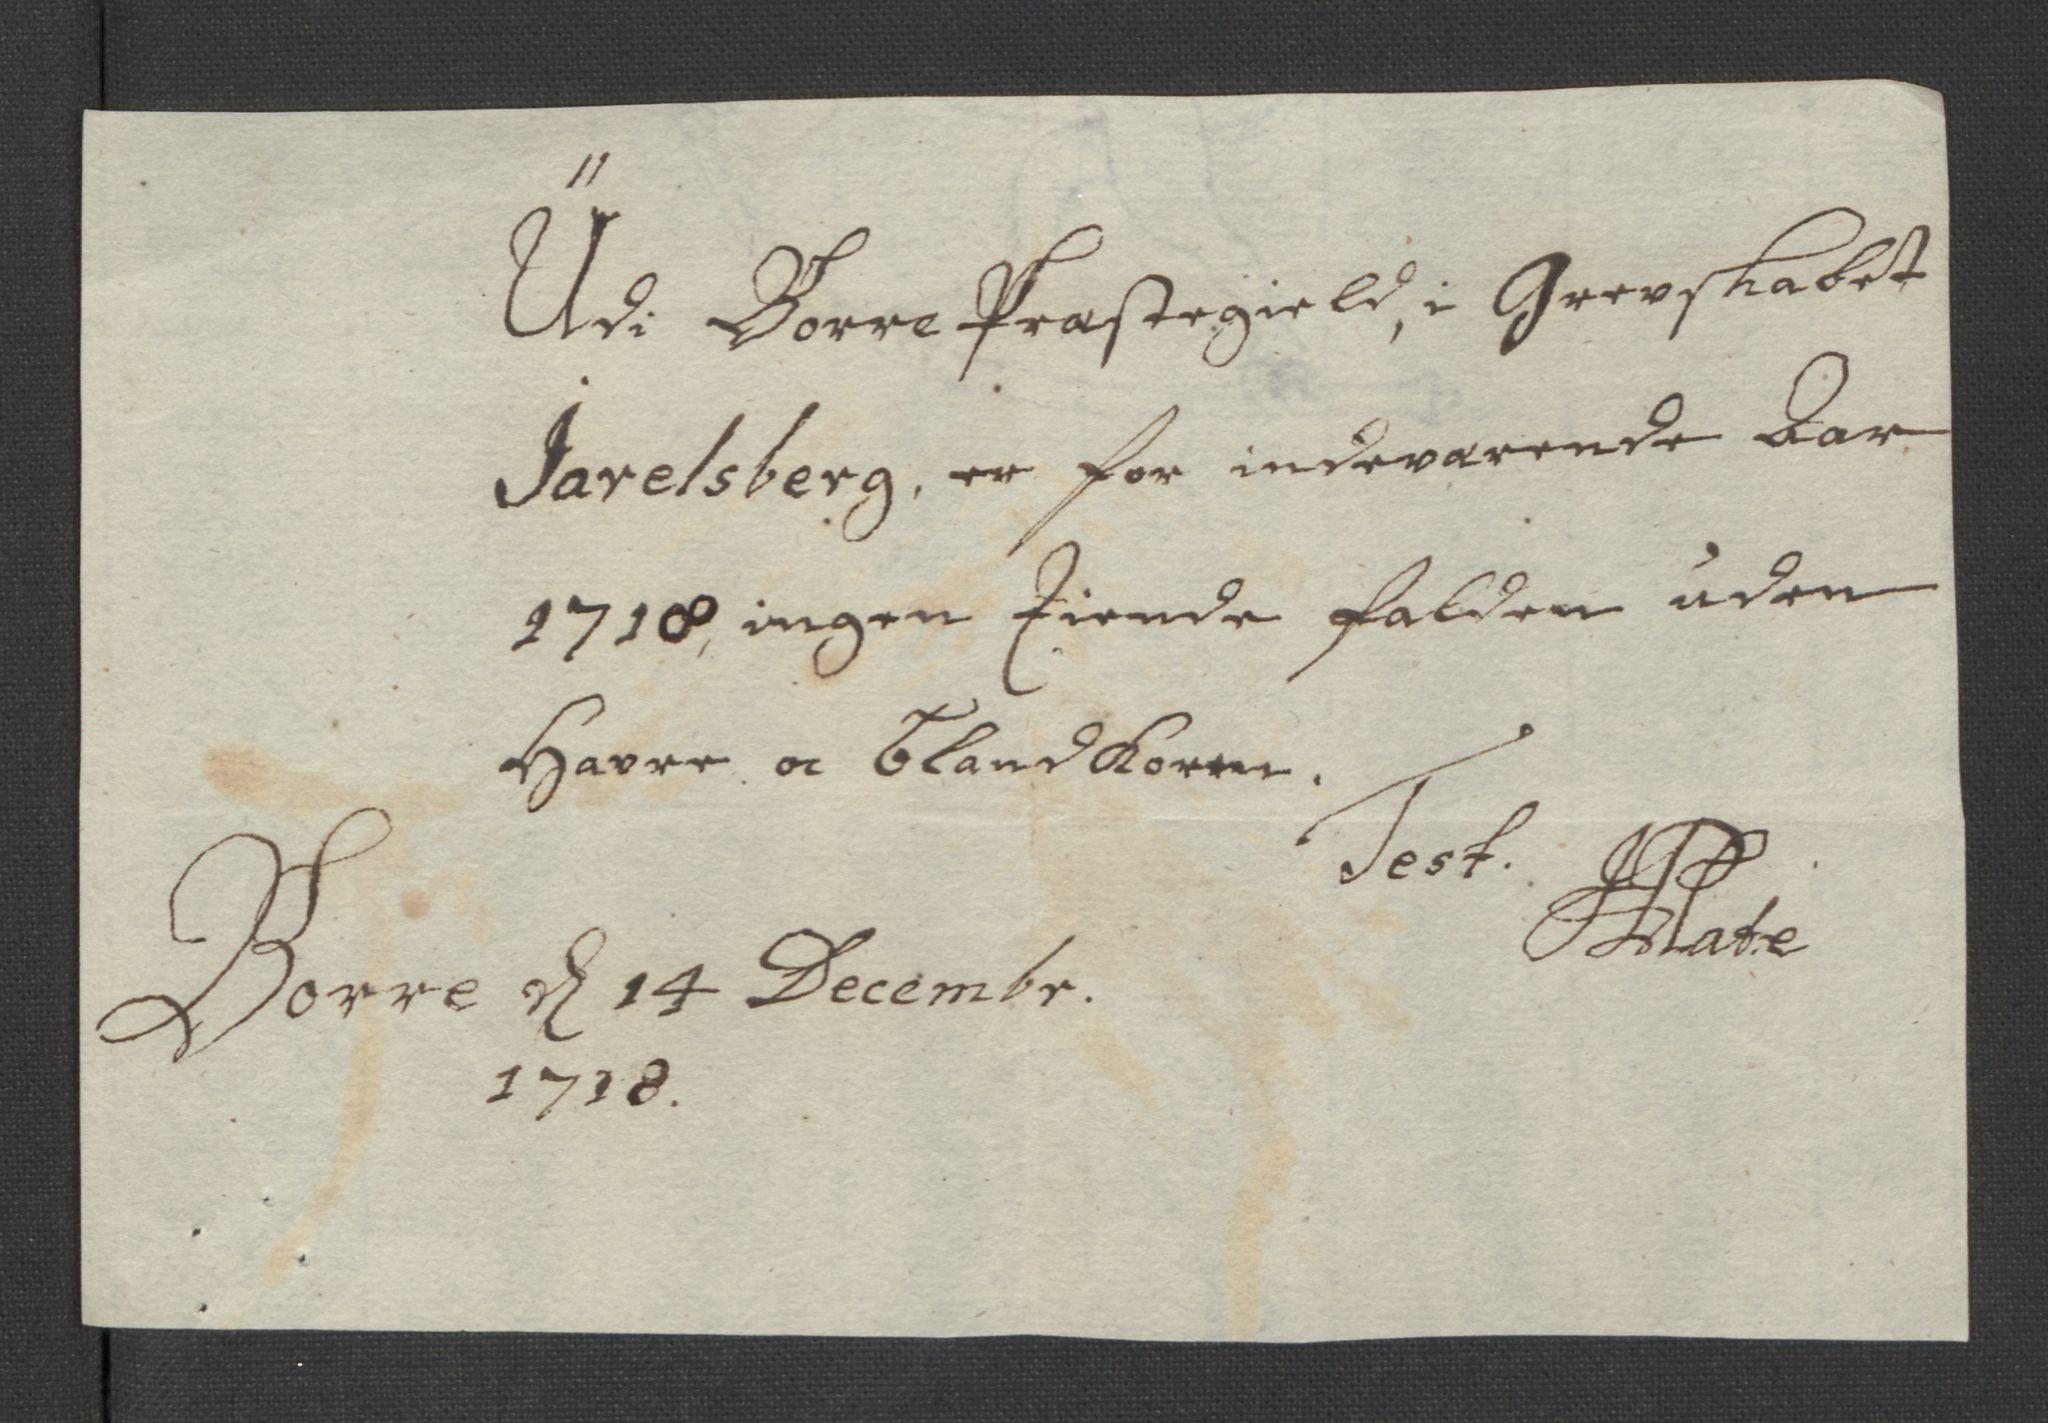 Udi Borre Præstegield, i Grevskabet
Jarelsberg, er for indeværende Aar
1718, ingen Tiende falden uden
Havre oc Blandkorn.
Test.
Borre d 14 Decembr.
1718.